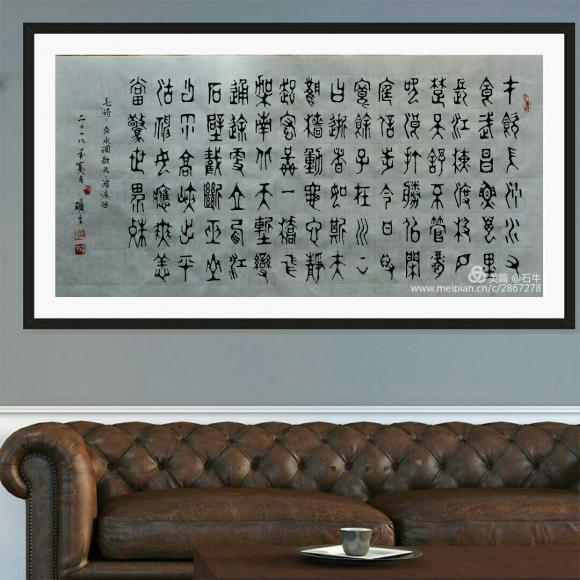 才飲長沙水又
食武昌魚萬里
長江橫渡極目
楚天舒不管風
吹浪打勝似閑
庭信步今日得
寬餘子在川上
曰逝者如斯夫
風檣動龜它靜
起宏圖一橋飛
架南北天塹變
通途更立西江
石壁截斷巫山
雲雨高峽出平
湖神女應無恙
當驚世界殊
毛詩·水調歌頭·游泳
二〇一八年夏月
美篇 @石牛
www.meipian.cn/c/2867278